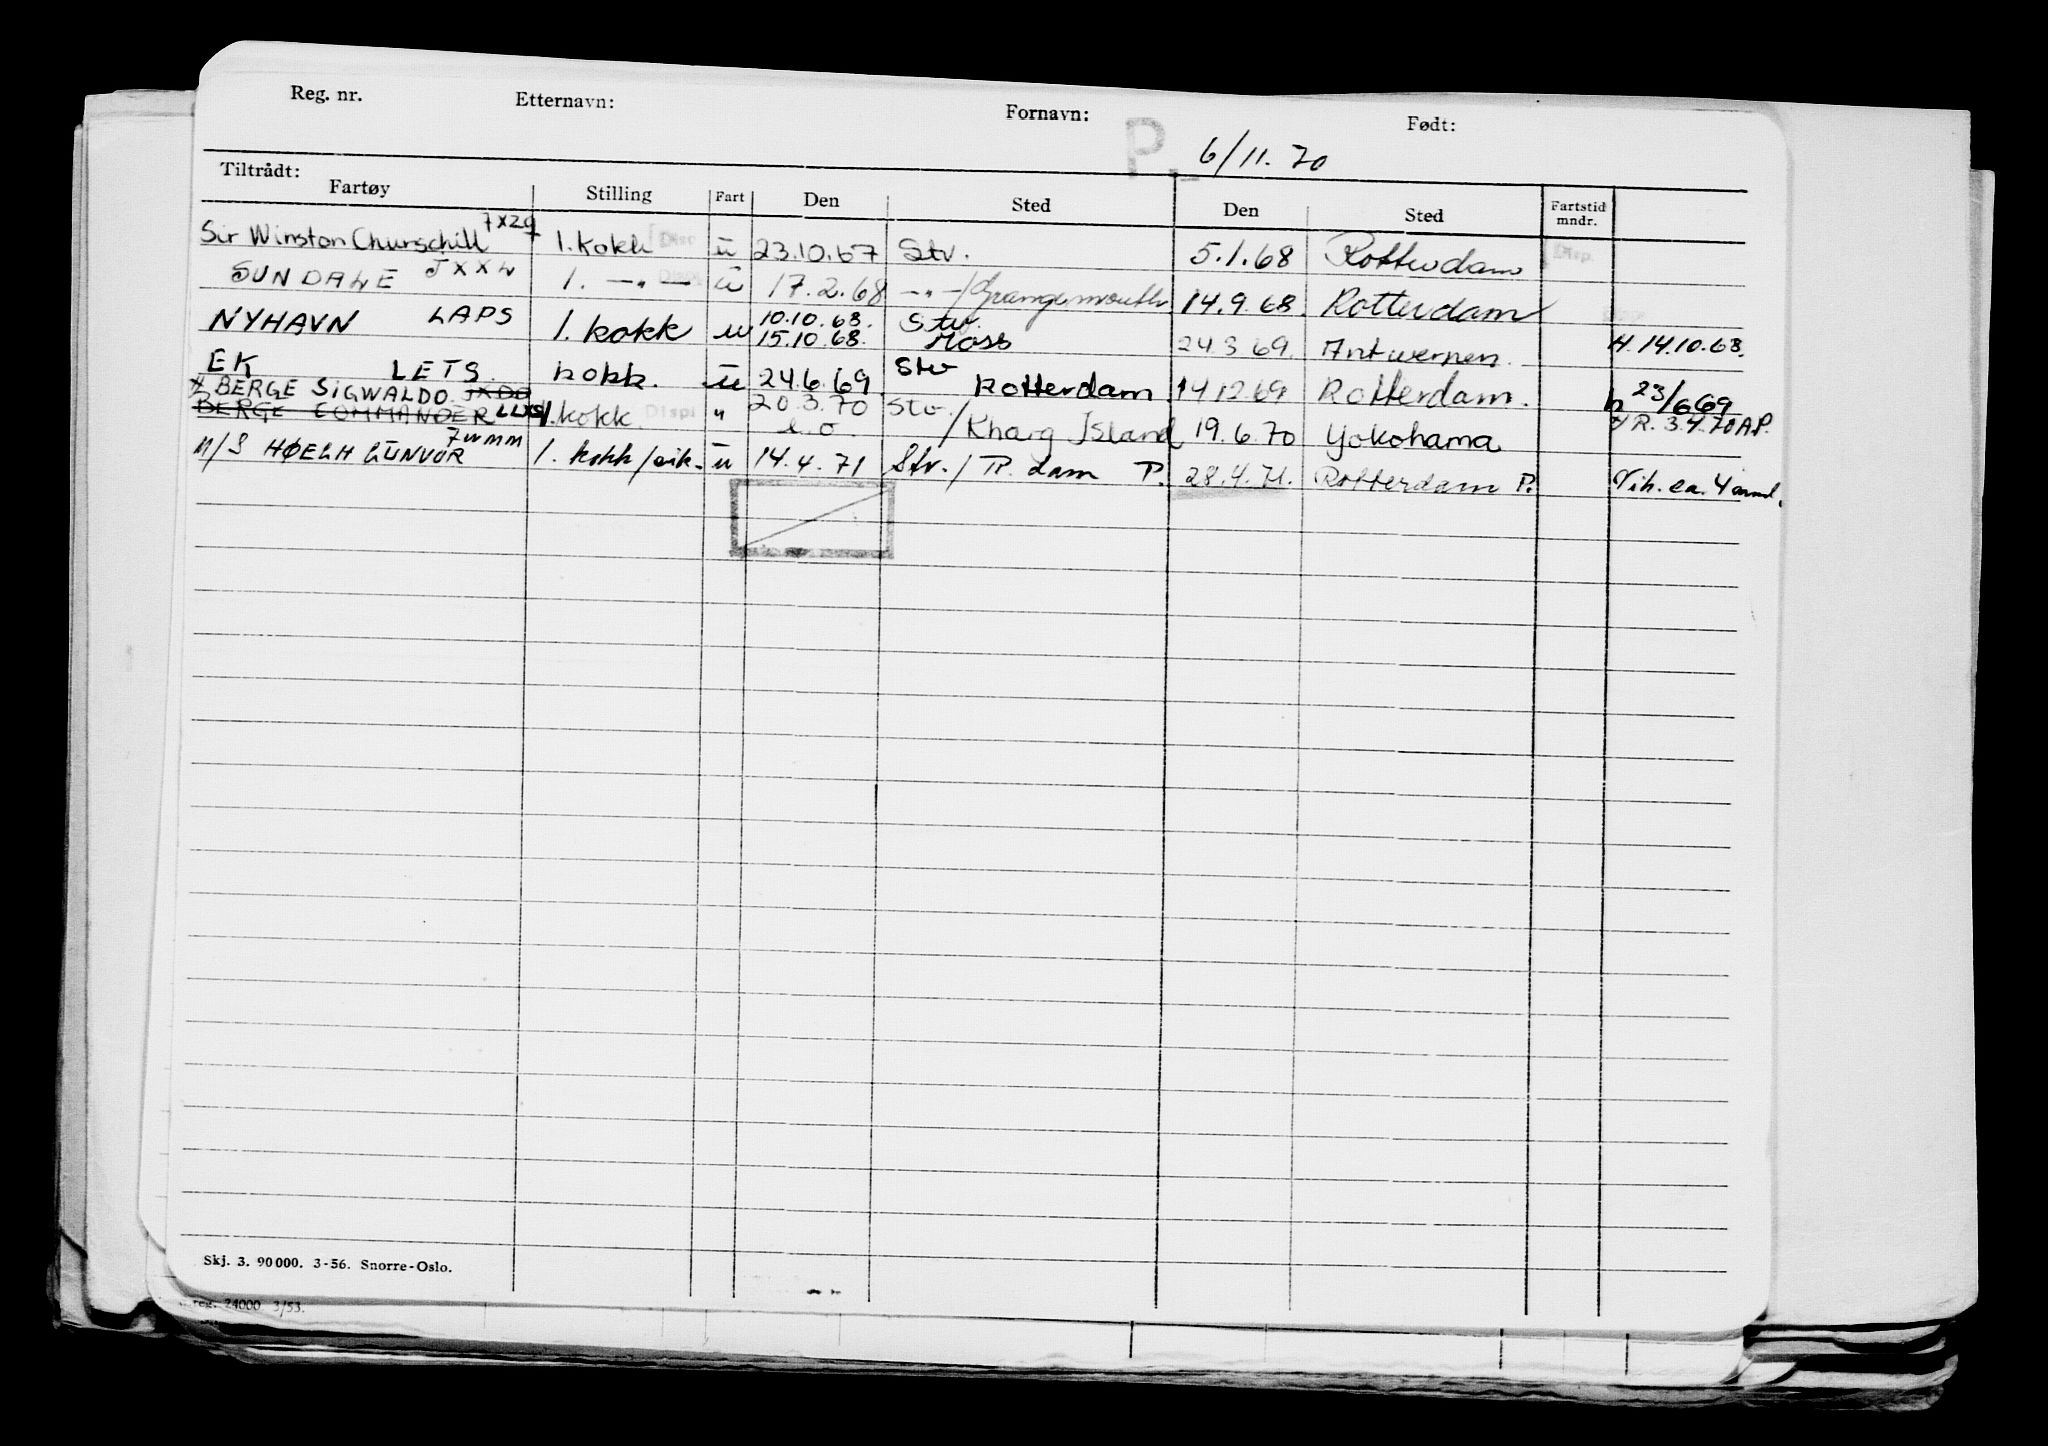 Reg. nr. Etternavn: Fornavn: Født:
P. 6/11. 70
Tiltrådt:
Fartøy Stilling Fart Den Sted Den Sted Fartstid mndr.
7XZQ
Sir Winston Churschill 1. kokk Disp ü 23.10.67 Stv. 5.1.68 Rotterdam Disp.
SUNDALE JXXW 1. —„— Disp. ü 17.2.68 —„—/Grangemouth 14.9.68 Rotterdam
NYHAVN LAPS 1. kokk u 10.10.68. Stv. 24.3.69. Antwerpen. H. 14.10.68.
15.10.68. Moss
EK LETS. kokk. ü 24.6.69 Stv Rotterdam 14.12.69 Rotterdam. h 23/669
x BERGE SIGWALDO JXDO
BERGE COMMANDER LLXS 1. kokk Displ „ 20.3.70 Stv. / Kharg Island 19.6.70 Yokohama R. 3.4.70 A.P.
7wmm
M/S HØEGH GUNVOR 1. kokk/eik. ü 14.4.71 Stv./R.dam P. 28.4.71. Rotterdam P. Vih. ca. 4 mnd.
Skj. 3. 90000. 3-56. Snorre-Oslo.
reg. 24000 3/53.